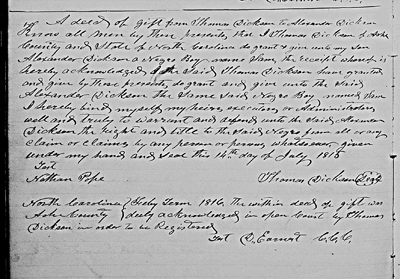 A deed of gift from Thomas Dickson to Alexander Dickson
Know all men by these presents that I Thomas Dickson of Ashe
County and State of North Carolina do grant & give unto my Son
Alexander Dickson a Negro Boy name Sam, the receipt whereof is
hereby acknowledged, the said Thomas Dickson have granted
and give by these presents do grant and give unto the said
Alexander Dickson the same said Negro Boy named Sam
I hereby bind myself my heirs, executors or Administrators
well and truly to warrant and defend unto the said Alexander
Dickson the right and title to the said Negro from all or any
claim or claims by any person or persons, whatsoever given
under my hand and seal this 14th day of July 1815
Test
Nathan Pope Thomas Dickson
North Carolina Term 1816, The within deed of gift was
Ashe County duly acknowledged in open Court by Thomas
Dickson in order to be Registered
Test C.C.C.